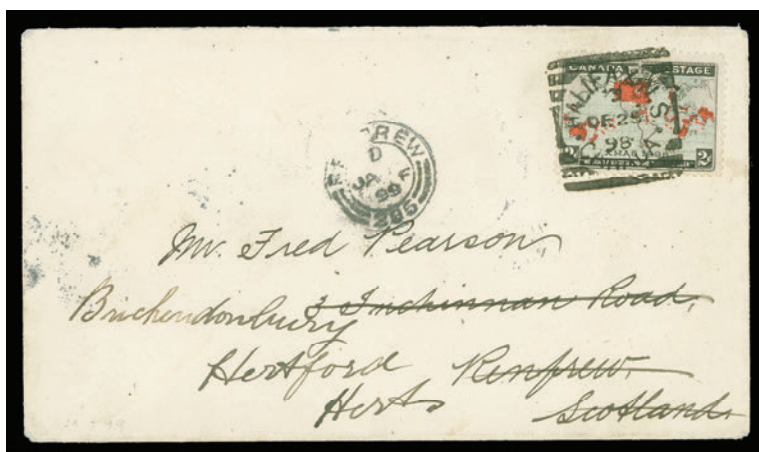 CANADA POSTAGE
HALIFAX N.S.
DE 25
98
XMAS 1898
2 2
RENFREW
D
JA
99
285
Mr. Fred Pearson
Brickendonbury 3 Inchinnan Road,
Hertford Renfrew.
Herts Scotland.